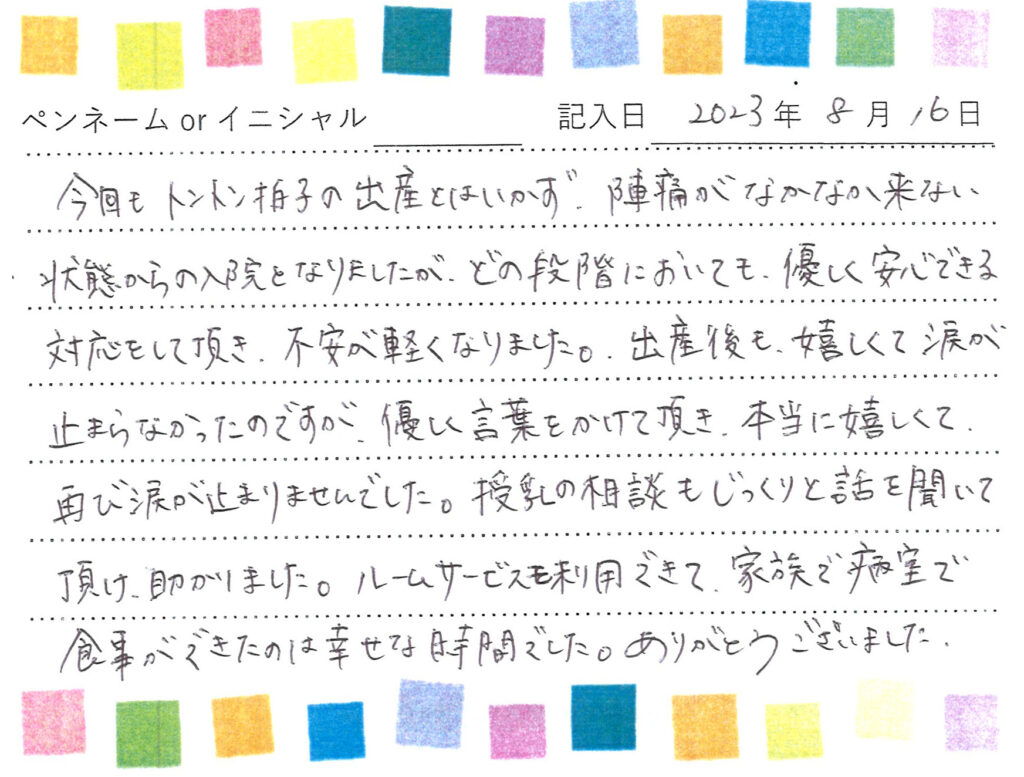 ペンネーム or イニシャル 記入日 2023年 8月 16日
今回も トントン拍子の出産とはいかず、陣痛がなかなか来ない
状態からの入院となりましたが、どの段階においても、優しく安心できる
対応をして頂き、不安が軽くなりました。出産後も、嬉しくて涙が
止まらなかったのですが、優しく言葉をかけて頂き、本当に嬉しくて、
再び涙が止まりませんでした。授乳の相談もじっくりと話を聞いて
頂け、助かりました。ルームサービスも利用できて、家族で病室で
食事ができたのは幸せな時間でした。ありがとうございました。